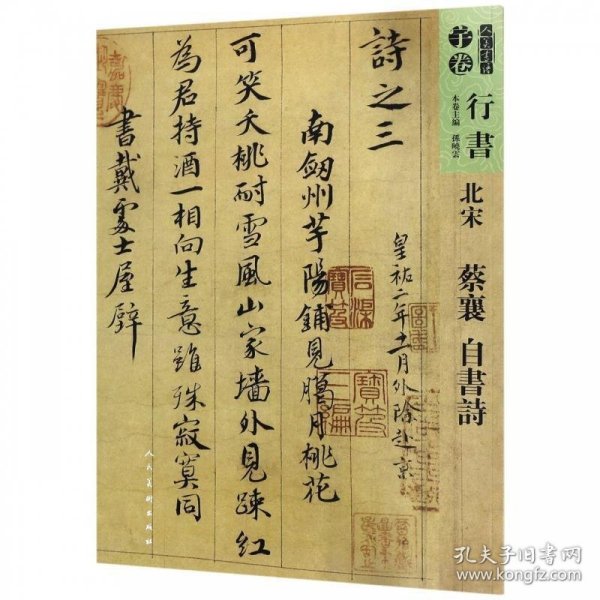 詩之三
皇祐二年十一月外除赴京
南劔州芋陽鋪見臘月桃花
可笑夭桃耐雪風山家墻外見踈紅
為君持酒一相向生意雖殊寂寞同
書戴處士屋壁
人民美術出版社
行書
本卷主編 孫曉雲
北宋 蔡襄 自書詩
孔夫子旧书网
www.kongfz.com